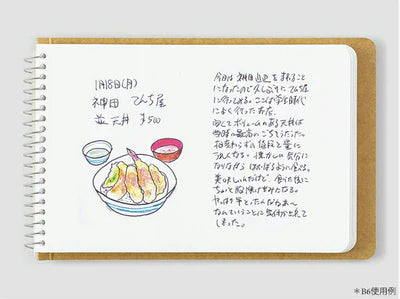 1月18日(月)
神田 てんち屋
並天丼 ¥500
今日は神田
になったので久しぶりに
に行ってみる。ここは学生時代
によく行ったお店。
安くてボリュームのある天丼は
当時の最高のごちそうだった。
相変わらずの値段と量に
うれしくなる。懐かしい気分に
なりながら ほおばるように食べる。
美味しいんだけど、食べた後に
ちょっと胸焼け
やっぱり年とったんだなあ〜
なんていうことに気付かされて
しまった。
*B6使用例